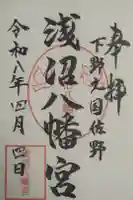 奉拝
下野之国佐野
浅沼八幡宮
令和八年四月四日